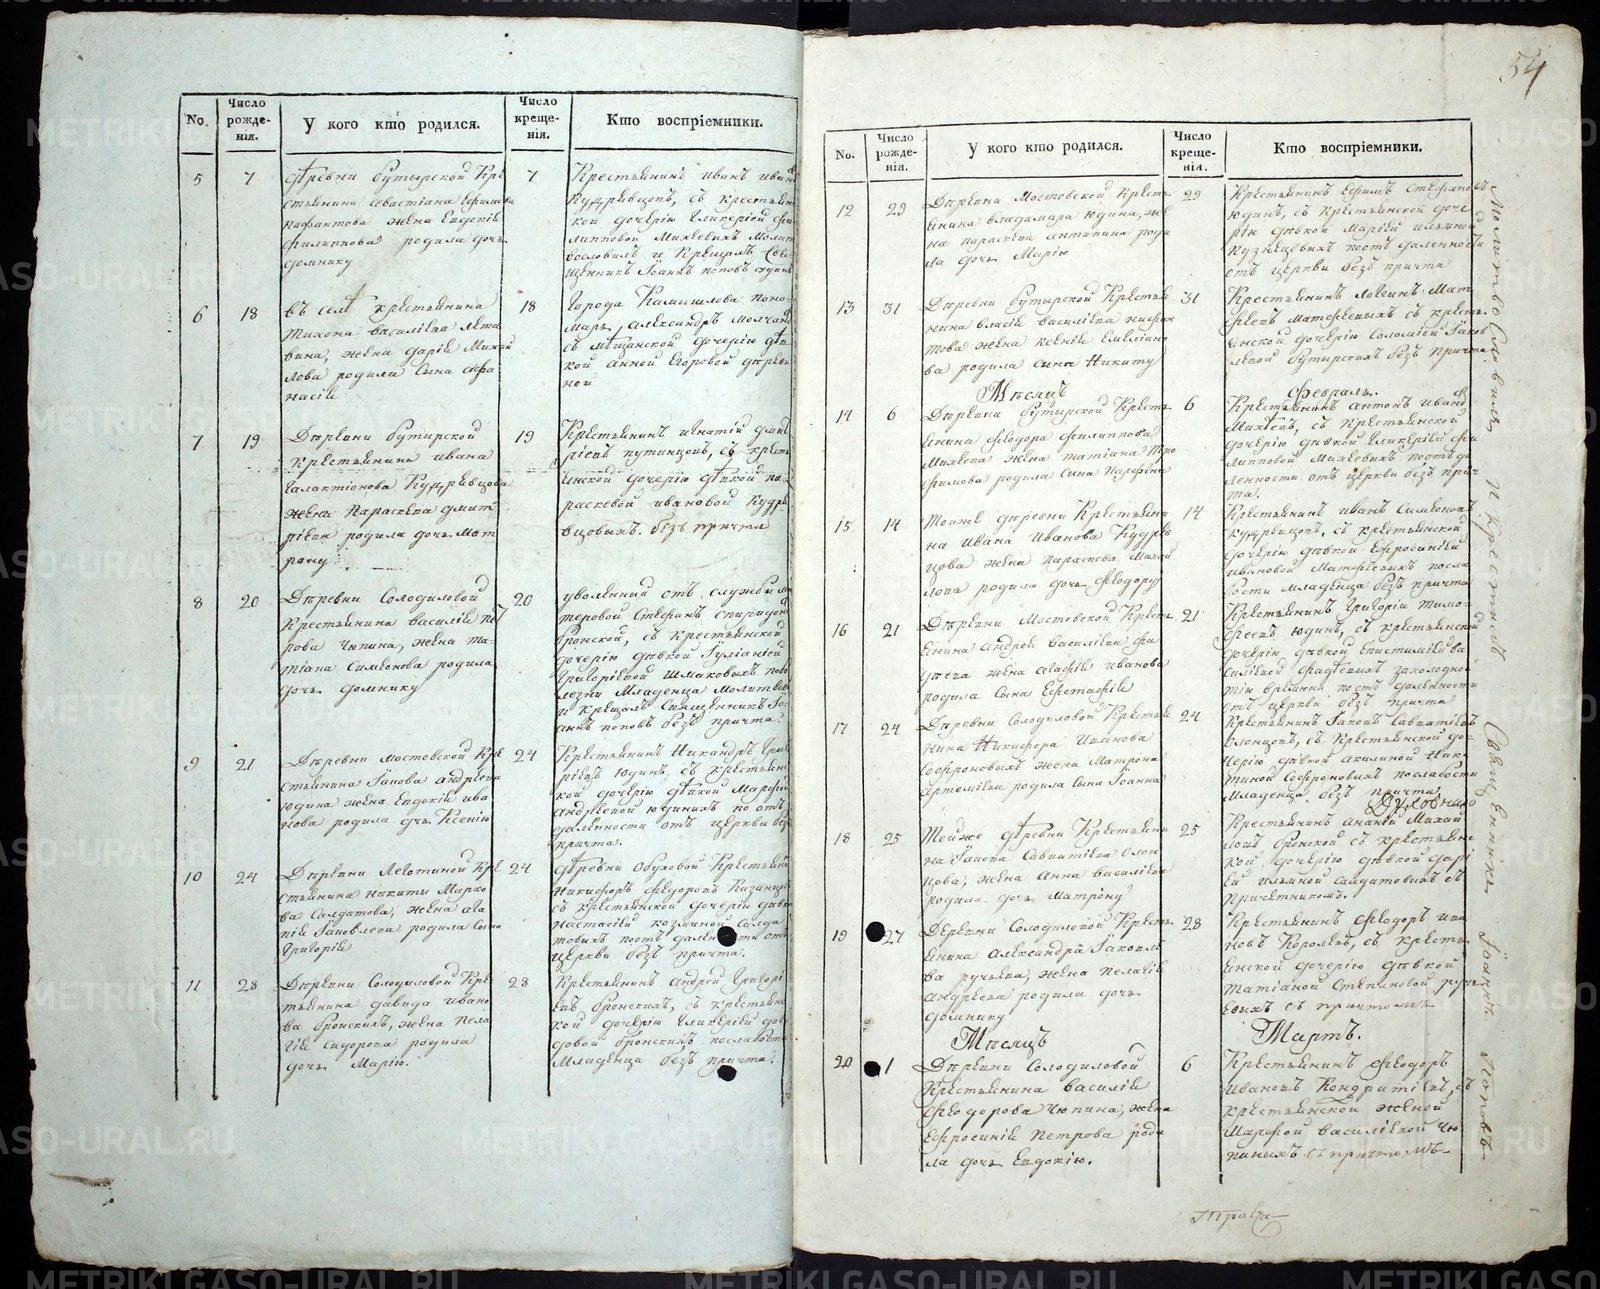 No.
Число рожде-нія.
У кого кто родился.
Число креще-нія.
Кто воспріемники.
5 7 7
Деревни Бутырской Кре
стьянина Севастіана Ефимова
Нифантова жена Евдокія
Филиппова родила дочь
Домнику
Крестьянинъ Иванъ Ивановъ
Кудрявцовъ, съ крестьянс
кой дочерію Гликеріей Фи
липповой Михѣевыхъ Молит
вословилъ и Крещалъ Свя
щенникъ Іоаннъ Поповъ одинъ
6 18 18
Въ селѣ крестьянина
Тихона Васильева
жена Дарія Михай
лова родила сына Афа
насія
Города Камышлова поно-
марь Александръ Молчановъ
съ мѣщанской дочерію дѣв
кой Анной Егоровой
7 19 19
Деревни Бутырской
Крестьянина Ивана
Галактіонова Кудрявцова
жена Параскева Дмит
ріева родила дочь Мат
рону
Крестьянинъ Игнатій Дмит
ріевъ Путинцовъ, съ кресть
янской дочерію дѣвкой Па
раскевой Ивановой Кудря
вцовыхъ. безъ причта
8 20 20
Деревни Солодиловой
Крестьянина Василія Пет
рова Чюпина, жена Та
тіана Симеонова родила
дочь Домнику
уволенный отъ службы
Стефанъ Спиридоновъ
Бронской, съ крестьянской
дочерію дѣвкой Іуліаніей
Григоріевой Шмаковыхъ по бо
лезни Младенца Молитвосл
и Крещалъ Священникъ Іо
аннъ Поповъ безъ причта.
9 21 24
Деревни Мостовской Кре
стьянина Іакова Андреева
Юдина жена Евдокія Ива
нова родила дочь Ксенію
Крестьянинъ Никандръ Григо
ріевъ Юдинъ, съ крестьянс
кой дочерію дѣвкой Марфой
Андреевой Юдиныхъ по отъ
даленности отъ церкви безъ
причта.
10 24 24
Кре
стьянина Никиты Марко
ва Солдатова, жена Ага
пія Іаковлева родила сына
Григорія
Деревни Обуховой Крестьянинъ
Никифоръ Феодоровъ Казанце
съ крестьянской дочерію дѣвк
Настасіей Козминой Солда
товыхъ
церкви безъ причта.
11 28 28
Деревни Солодиловой Крес
тьянина Давида Ивано
ва Бронскихъ, жена Пела
гія Сидорова родила
дочь Марію.
Крестьянинъ Андрей Григорі
евъ Бронскихъ, съ крестьянс
кой дочерію Гликеріей Дав
довой Бронскихъ послабости
Младенца безъ причта.
54
No.
Число рожде-нія.
У кого кто родился.
Число креще-нія.
Кто воспріемники.
12 29 29
Деревни Мостовской Кресть
янина Владимира Юдина, же
на Парасковія Антипина роди
ла дочь Марію
Крестьянинъ Ефимъ Стефановъ
Юдинъ, съ Крестьянской доче
рію дѣвкой Маріей Ильиной
Кузнецовыхъ по отдаленности
отъ церкви безъ причта
13 31 31
Деревни Бутырской Крестья
нина Власія Васильева Нифан
това жена Ксенія Емеліяно
ва родила сына Никиту
Крестьянинъ Логинъ Мат
феевъ Матфеевыхъ съ кресть
янской дочерію Соломіей Іаков
левой Бутырскихъ безъ причта
Мѣсяцъ Февраль.
14 6 6
Деревни Бутырской Кресть
янина Феодора Филиппова
Михѣева жена Татіана Тро
фимова родила сына Парфена
Крестьянинъ Антонъ Иванов
Михѣевъ, съ Крестьянской
дочерію дѣвкой Гликеріей Фи
липповой Михѣевыхъ по отъда
ленности отъ церкви безъ прич
та.
15 14 14
Тойже деревни Крестьяни
на Ивана Иванова Кудряв
цова жена Параскева Михай
лова родила дочь Феодору
Крестьянинъ Иванъ Симеоновъ
Кудрявцовъ, съ крестьянской
дочерію дѣвкой Ефросиніей
Ивановой Матфеевыхъ посла
бости младенца безъ причта
16 21 21
Деревни Мостовской Кресть
янина Андрея Васильева Фа
деева жена Агафія Иванова
родила сына Евстафія
Крестьянинъ Григорій Тимо-
феевъ Юдинъ, съ крестьянской
дочерію дѣвкой Епистиміей Ва
сильевой Фадѣевыхъ захолодно
тію времени по отъ даленности
отъ церкви безъ причта
17 24 24
Деревни Солодиловой Крестья
нина Никифора Иванова
Софроновыхъ жена Матрона
Артемьева родила сына Іоанна
Крестьянинъ Іаковъ Савватіевъ
Блонцовъ, съ Крестьянской до-
черію дѣвкой Акилиной Ники
тиной Софроновыхъ послабости
Младенца безъ причта
18 25 25
Тойже деревни Крестьяни
на Іакова Савватіева Блон
цова, жена Анна Васильева
родила дочь Матрону
Крестьянинъ Ананій Михай
ловъ Бронской съ крестьянс
кой дочерію дѣвкой Дарі
ей Ильиной Солдатовыхъ съ
причетникомъ.
19 27 28
Деревни Солодиловой Кресть
янина Александра Іаковле
ва Ручьева, жена Пелагія
Андреева родила дочь
Домнику
Крестьянинъ Феодоръ Ива
новъ Королевъ, съ кресть
янской дочерію дѣвкой
Татіаной Степановой Ручь
евыхъ съ причтомъ
Мѣсяцъ Мартъ.
20 1 6
Деревни Солодиловой
Крестьянина Василія
Феодорова Чюпина, жена
Ефросинія Петрова роди
ла дочь Евдокію.
Крестьянинъ Феодоръ
Ивановъ Кондратіевъ, съ
крестьянской женой
Марфой Васильевой Чю
пиныхъ съ причтомъ
Молитвословилъ и крестилъ Священникъ Іоаннъ Поповъ
METRIKI.GASO-URAL.RU